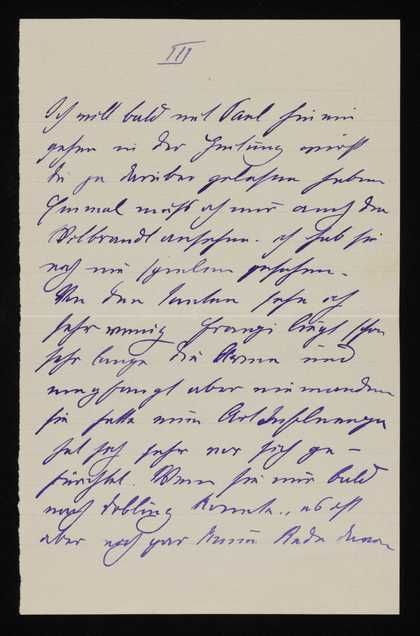 III
Ich will bald mit Paul hinein
gehen in der Zeitung wirst
Du ja darüber gelesen haben
Einmal muß ich mir auch den
Wilbrandt ansehen. ich hab sie
noch nie spielen gesehen.
Von den Tanten sehe ich
sehr wenig Franzi liegt schon
sehr lange die Arme und
aber niemanden
sie hatte eine Art
hat sich sehr vor sich ge-
fürchtet. Wenn sie nur bald
nach Döbling könnte, es ist
aber noch gar keine Rede davon